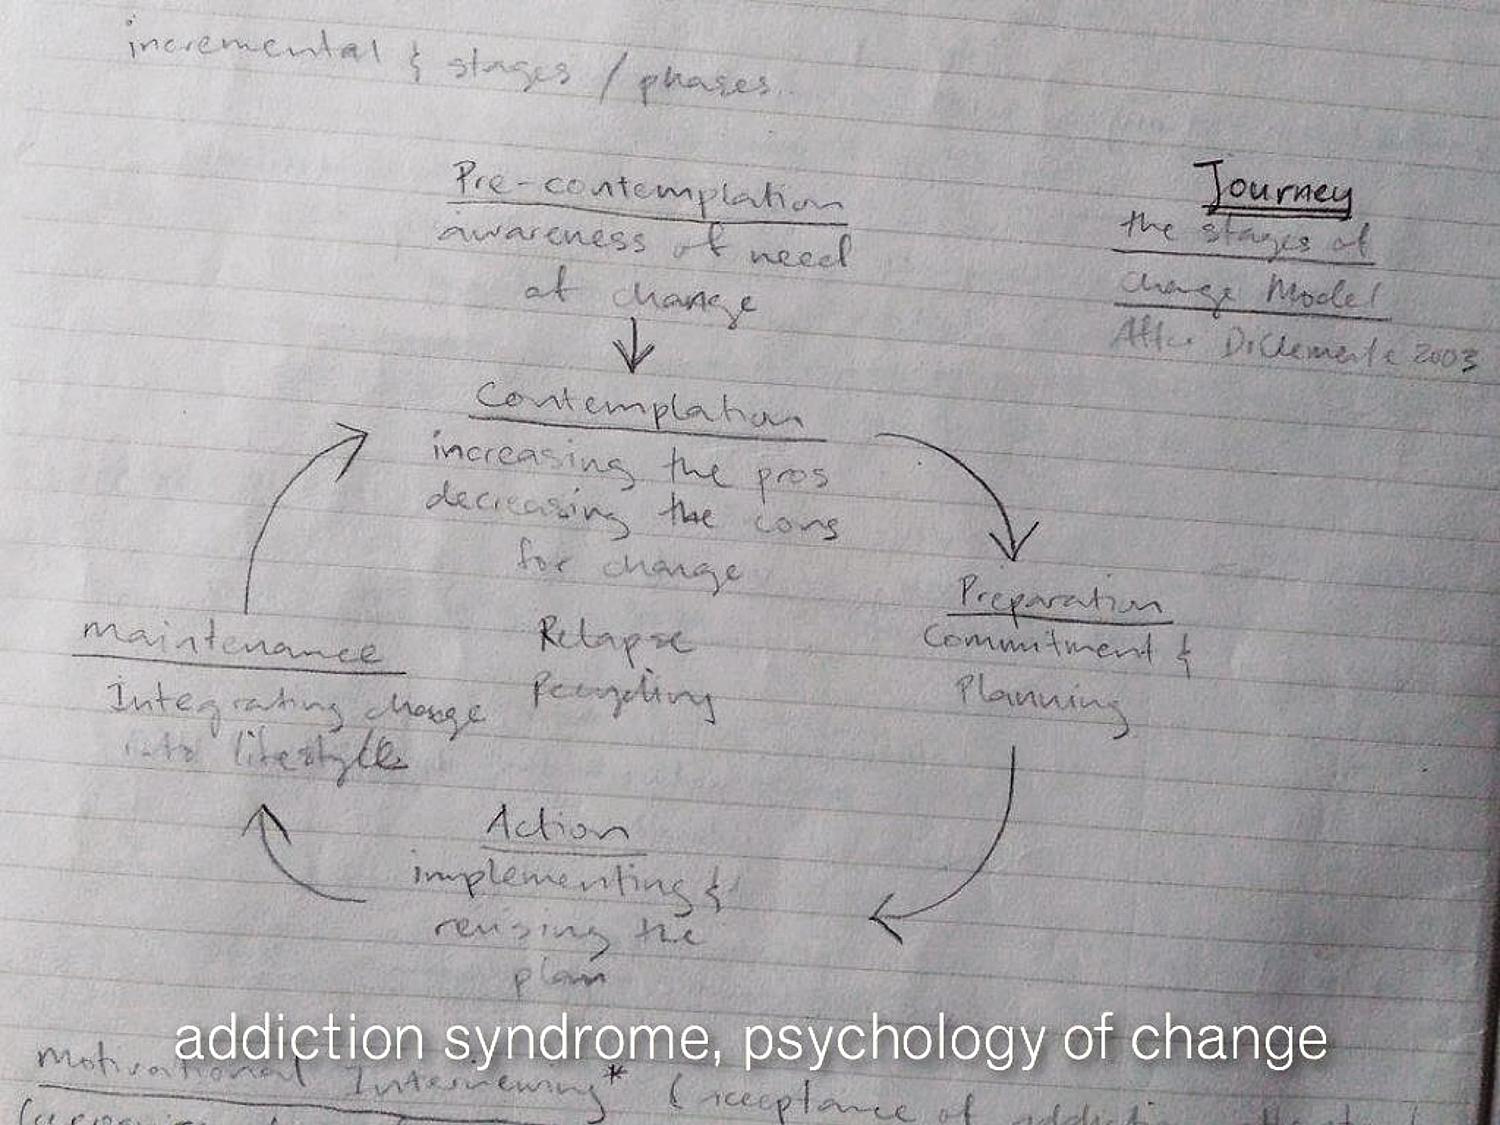 incremental & stages / phases
Journey
the stages of
change Model
After DiClemente 2003
Pre-contemplation
awareness of need
of change
Contemplation
increasing the pros
decreasing the cons
for change
Preparation
Commitment &
Planning
maintenance
Integrating change
into lifestyle
Relapse
Recycling
Action
implementing &
revising the
plan
addiction syndrome, psychology of change
Motivational Interviewing* (acceptance of